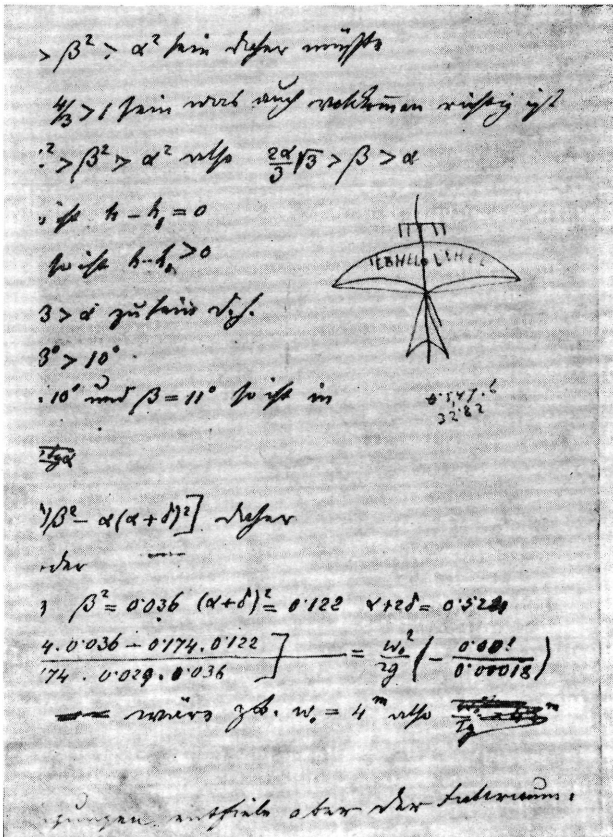 > β² > α² sein daher müsste
4/3 > 1 sein was auch vollkommen richtig ist
² > β² > α² also 2α/3 √3 > β > α
ist h - h₁ = 0
so ist h - h₁ > 0
β > α zu sein d.h.
β° > 10°
10° und β = 11° so ist in
6·5,47·6
32·82
tgα
β² - α(α+δ)²] daher
oder
β² = 0·036 (α+δ)² = 0·122 α+2δ = 0·524
4.0·036 - 0·174.0·122 / 74 . 0·029 . 0·036 ] = w₀²/2g (- 0·00! / 0·00018)
wäre zb. w₀ = 4ᵐ also
entfiele aber der